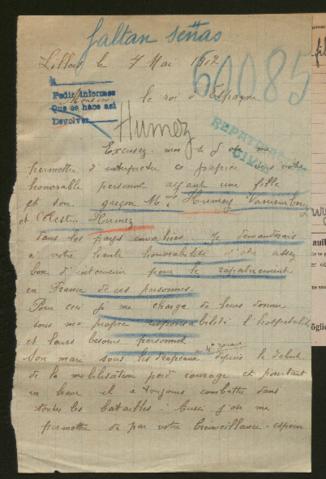 faltan señas
Lillers le 7 Mai 1917
60085
Pedir informes
Que se hace así
Devolver
Monsieur
le roi d'Espagne
Humez
REPATRIA
CIVIL
Excusez moi si j'ose me
permettre d'
honorable personne ayant une fille
et son garçon Humez
et Celestin Humez
dans les pays envahies. Je demanderais
à votre haute honorabilité d'être assez
bon d'intervenir pour le rapatriement
en France de ces personnes.
Pour ceci je me charge de leurs donner
sous ma propre responsabilité l'hospitalité
et leurs besoins personnel
Mon mari sous les drapeaux depuis le début
de la mobilisation perd courage et pourtant
en héros il a toujours combattu dans
toutes les batailles. Aussi j'ose me
permettre de par votre bienveillance